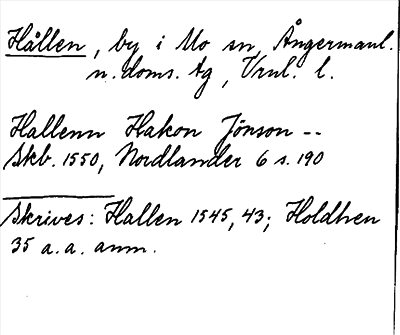 Hållen, by i Mo sn, Ångermanl.
n. doms. tg, Vnl. l.
Hallenn Hakon Jönson --
Skb. 1550, Nordlander 6 s. 190
Skrives: Hallen 1545, 43; Holdhen
35 a. a. anm.